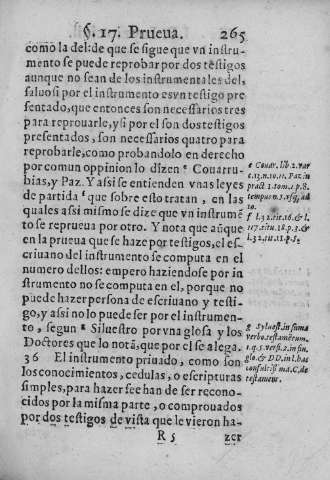 §. 17. Prueua. 265
como la del: de que se sigue que vn instru-
mento se puede reprobar por dos tẽstigos
aunque no sean de los instrumentales del,
saluo si por el instrumento es vn testigo pre
sentado, que entonces son necessarios tres
para reprouarle, y si por el son dos testigos
presentados, son necessarios quatro para
reprobarle, como probandolo en derecho
por comun oppinion lo dizen e Couarru-
bias, y Paz. Y assi se entienden vnas leyes
de partida f que sobre esto tratan, en las
quales assi mismo se dize que vn instrumẽ
to se reprueua por otro. Y nota que aũque
en la prueua que se haze por testigos, el es
criuano del instrumento se computa en el
numero dellos: empero haziendose por in
strumento no se computa en el, porque no
puede hazer persona de escriuano y testi-
go, y assi no lo puede ser por el instrumen-
to, segun g Siluestro por vna glosa y los
Doctores que lo notã, que por el se alega.
36 El instrumento priuado, como son
los conocimientos, cedulas, o escripturas
simples, para hazer fee han de ser recono-
cidos por la misma parte, o comprouados
por dos testigos de vista que le vieron ha-
R 5 zer
e Couar. lib. 2. var
c. 13. n. 10. 11. Paz in
pract. 1. tom. 1. p. 8.
tempus n. 3. vsq; ad
10.
f l. 32. tit. 16. & l.
117. titu. 18. p. 3. &
l. 32. tit. 11. p. 5
g Syluest. in suma
verbo testamẽtum.
1. q. 5. versi. 2. in fin
glo. & DD. in l. hac
consultissima. C. de
testamen.